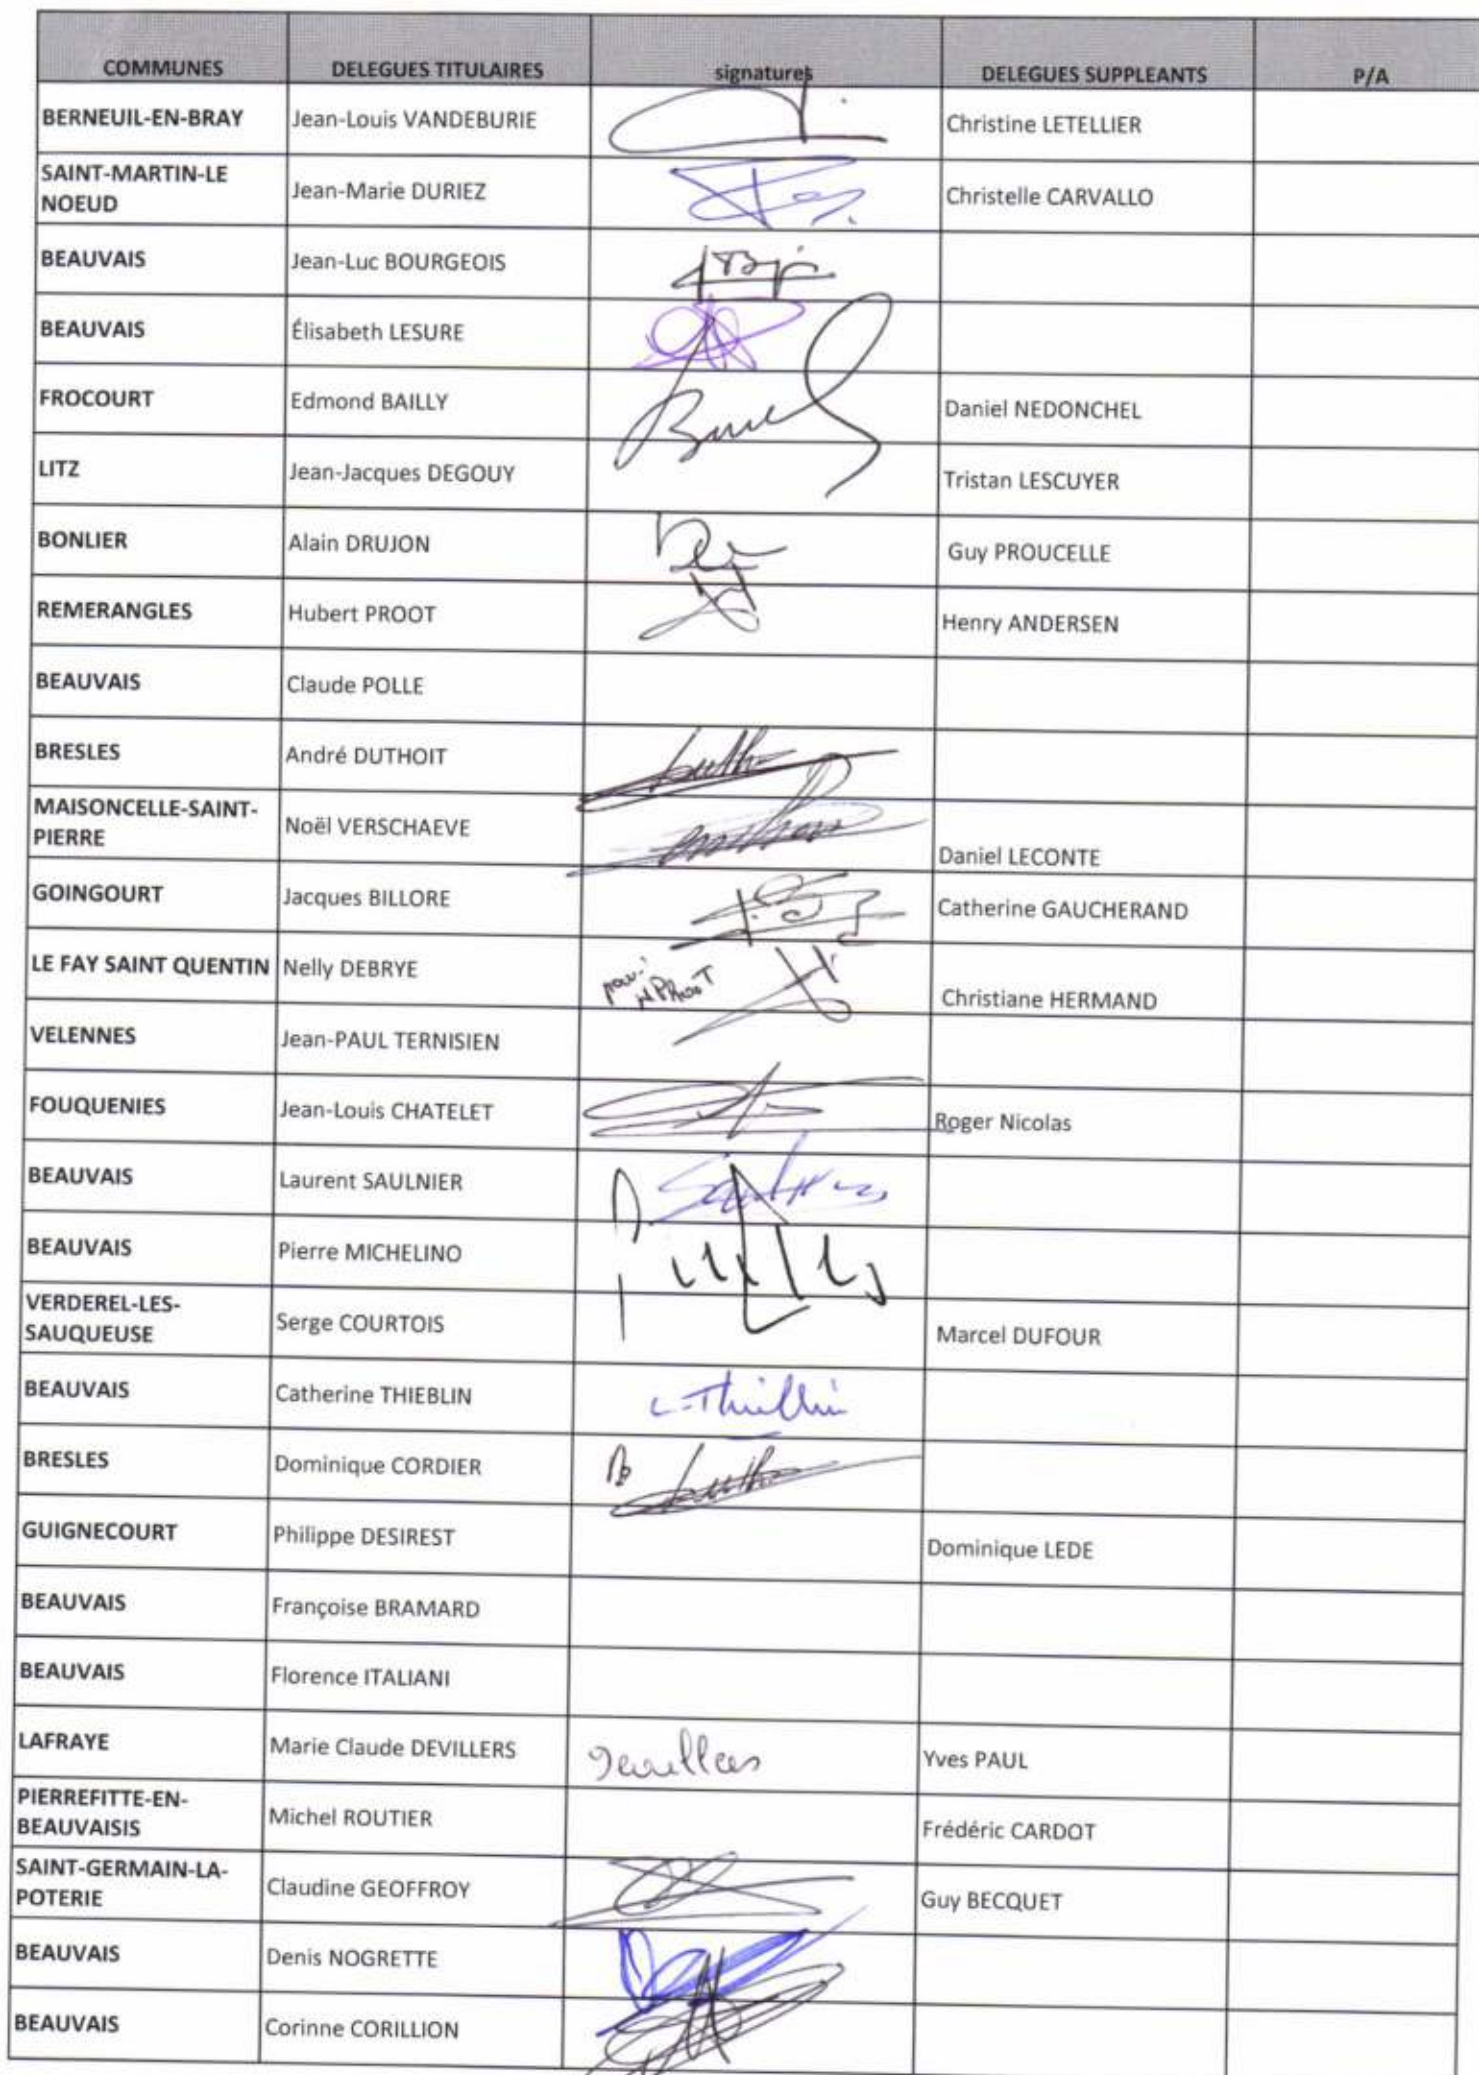 COMMUNES DELEGUES TITULAIRES signatures DELEGUES SUPPLEANTS P/A
BERNEUIL-EN-BRAY Jean-Louis VANDEBURIE Christine LETELLIER
SAINT-MARTIN-LE
NOEUD Jean-Marie DURIEZ Christelle CARVALLO
BEAUVAIS Jean-Luc BOURGEOIS
BEAUVAIS Élisabeth LESURE
FROCOURT Edmond BAILLY Daniel NEDONCHEL
LITZ Jean-Jacques DEGOUY Tristan LESCUYER
BONLIER Alain DRUJON Guy PROUCELLE
REMERANGLES Hubert PROOT Henry ANDERSEN
BEAUVAIS Claude POLLE
BRESLES André DUTHOIT
MAISONCELLE-SAINT-
PIERRE Noël VERSCHAEVE Daniel LECONTE
GOINGOURT Jacques BILLORE Catherine GAUCHERAND
LE FAY SAINT QUENTIN Nelly DEBRYE pour H PROOT Christiane HERMAND
VELENNES Jean-PAUL TERNISIEN
FOUQUENIES Jean-Louis CHATELET Roger Nicolas
BEAUVAIS Laurent SAULNIER
BEAUVAIS Pierre MICHELINO
VERDEREL-LES-
SAUQUEUSE Serge COURTOIS Marcel DUFOUR
BEAUVAIS Catherine THIEBLIN
BRESLES Dominique CORDIER
GUIGNECOURT Philippe DESIREST Dominique LEDE
BEAUVAIS Françoise BRAMARD
BEAUVAIS Florence ITALIANI
LAFRAYE Marie Claude DEVILLERS Yves PAUL
PIERREFITTE-EN-
BEAUVAISIS Michel ROUTIER Frédéric CARDOT
SAINT-GERMAIN-LA-
POTERIE Claudine GEOFFROY Guy BECQUET
BEAUVAIS Denis NOGRETTE
BEAUVAIS Corinne CORILLION